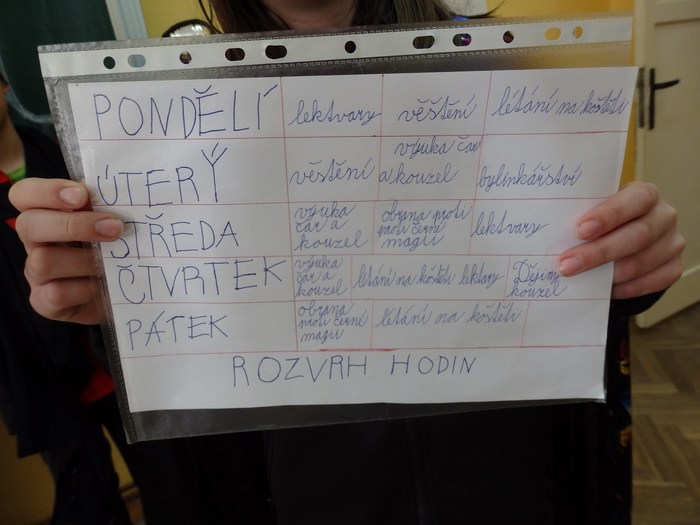 PONDĚLÍ lektvary věštění létání na koštěti
ÚTERÝ věštění výuka čar a kouzel bylinkářství
STŘEDA výuka čar a kouzel obrana proti proti černé magii lektvary
ČTVRTEK výuka čar a kouzel létání na koštěti lektvary Dějiny kouzel
PÁTEK obrana proti černé magii létání na koštěti
ROZVRH HODIN